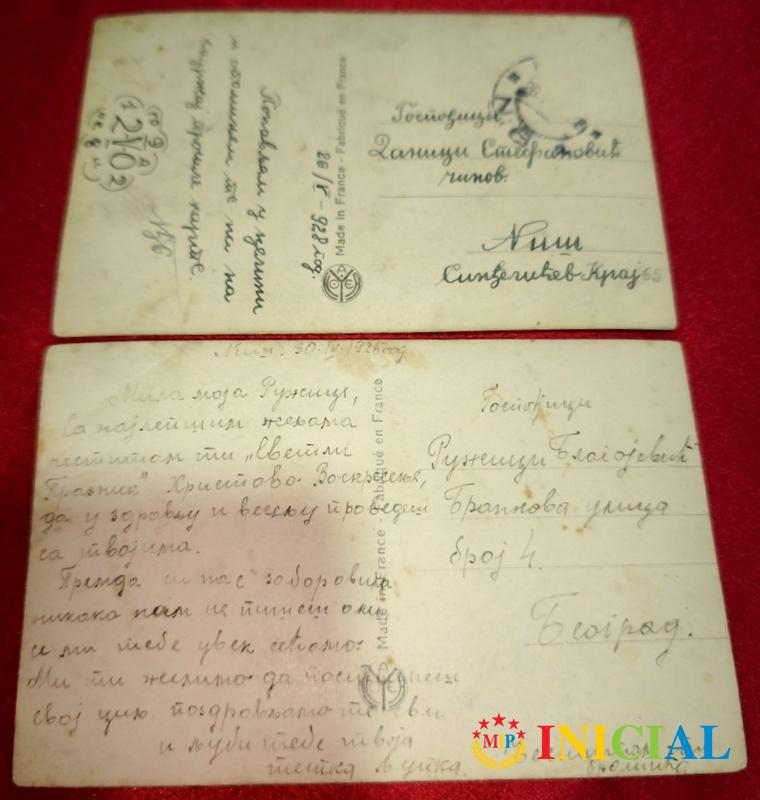 Понављам у целини
и опомињем те на
садржај прошле карте.
20/V – 928 год.
Made in France - Fabriqué en France
Госпођици
Даници Стефановић
чинов.
Ниш
Синђелићев Крај 65
Ниш. 30. IV. 1926 год
Мила моја Ружице,
Са најлепшим жељама
честитам ти „Светли
Празник" Христово Воскрсење,
да у здрављу и весељу проведеш
са твојима.
Премда си нас заборавила
никако нам не пишеш али
се ми тебе увек сећамо.
Ми ти желимо да постигнеш
свој циљ. поздрављамо те сви
и љуби тебе твоја
тетка Љупка.
Made in France - Fabriqué en France
Госпођици
Ружици Благојевић
Бранкова улица
број 4.
Београд.
MIP INICIAL